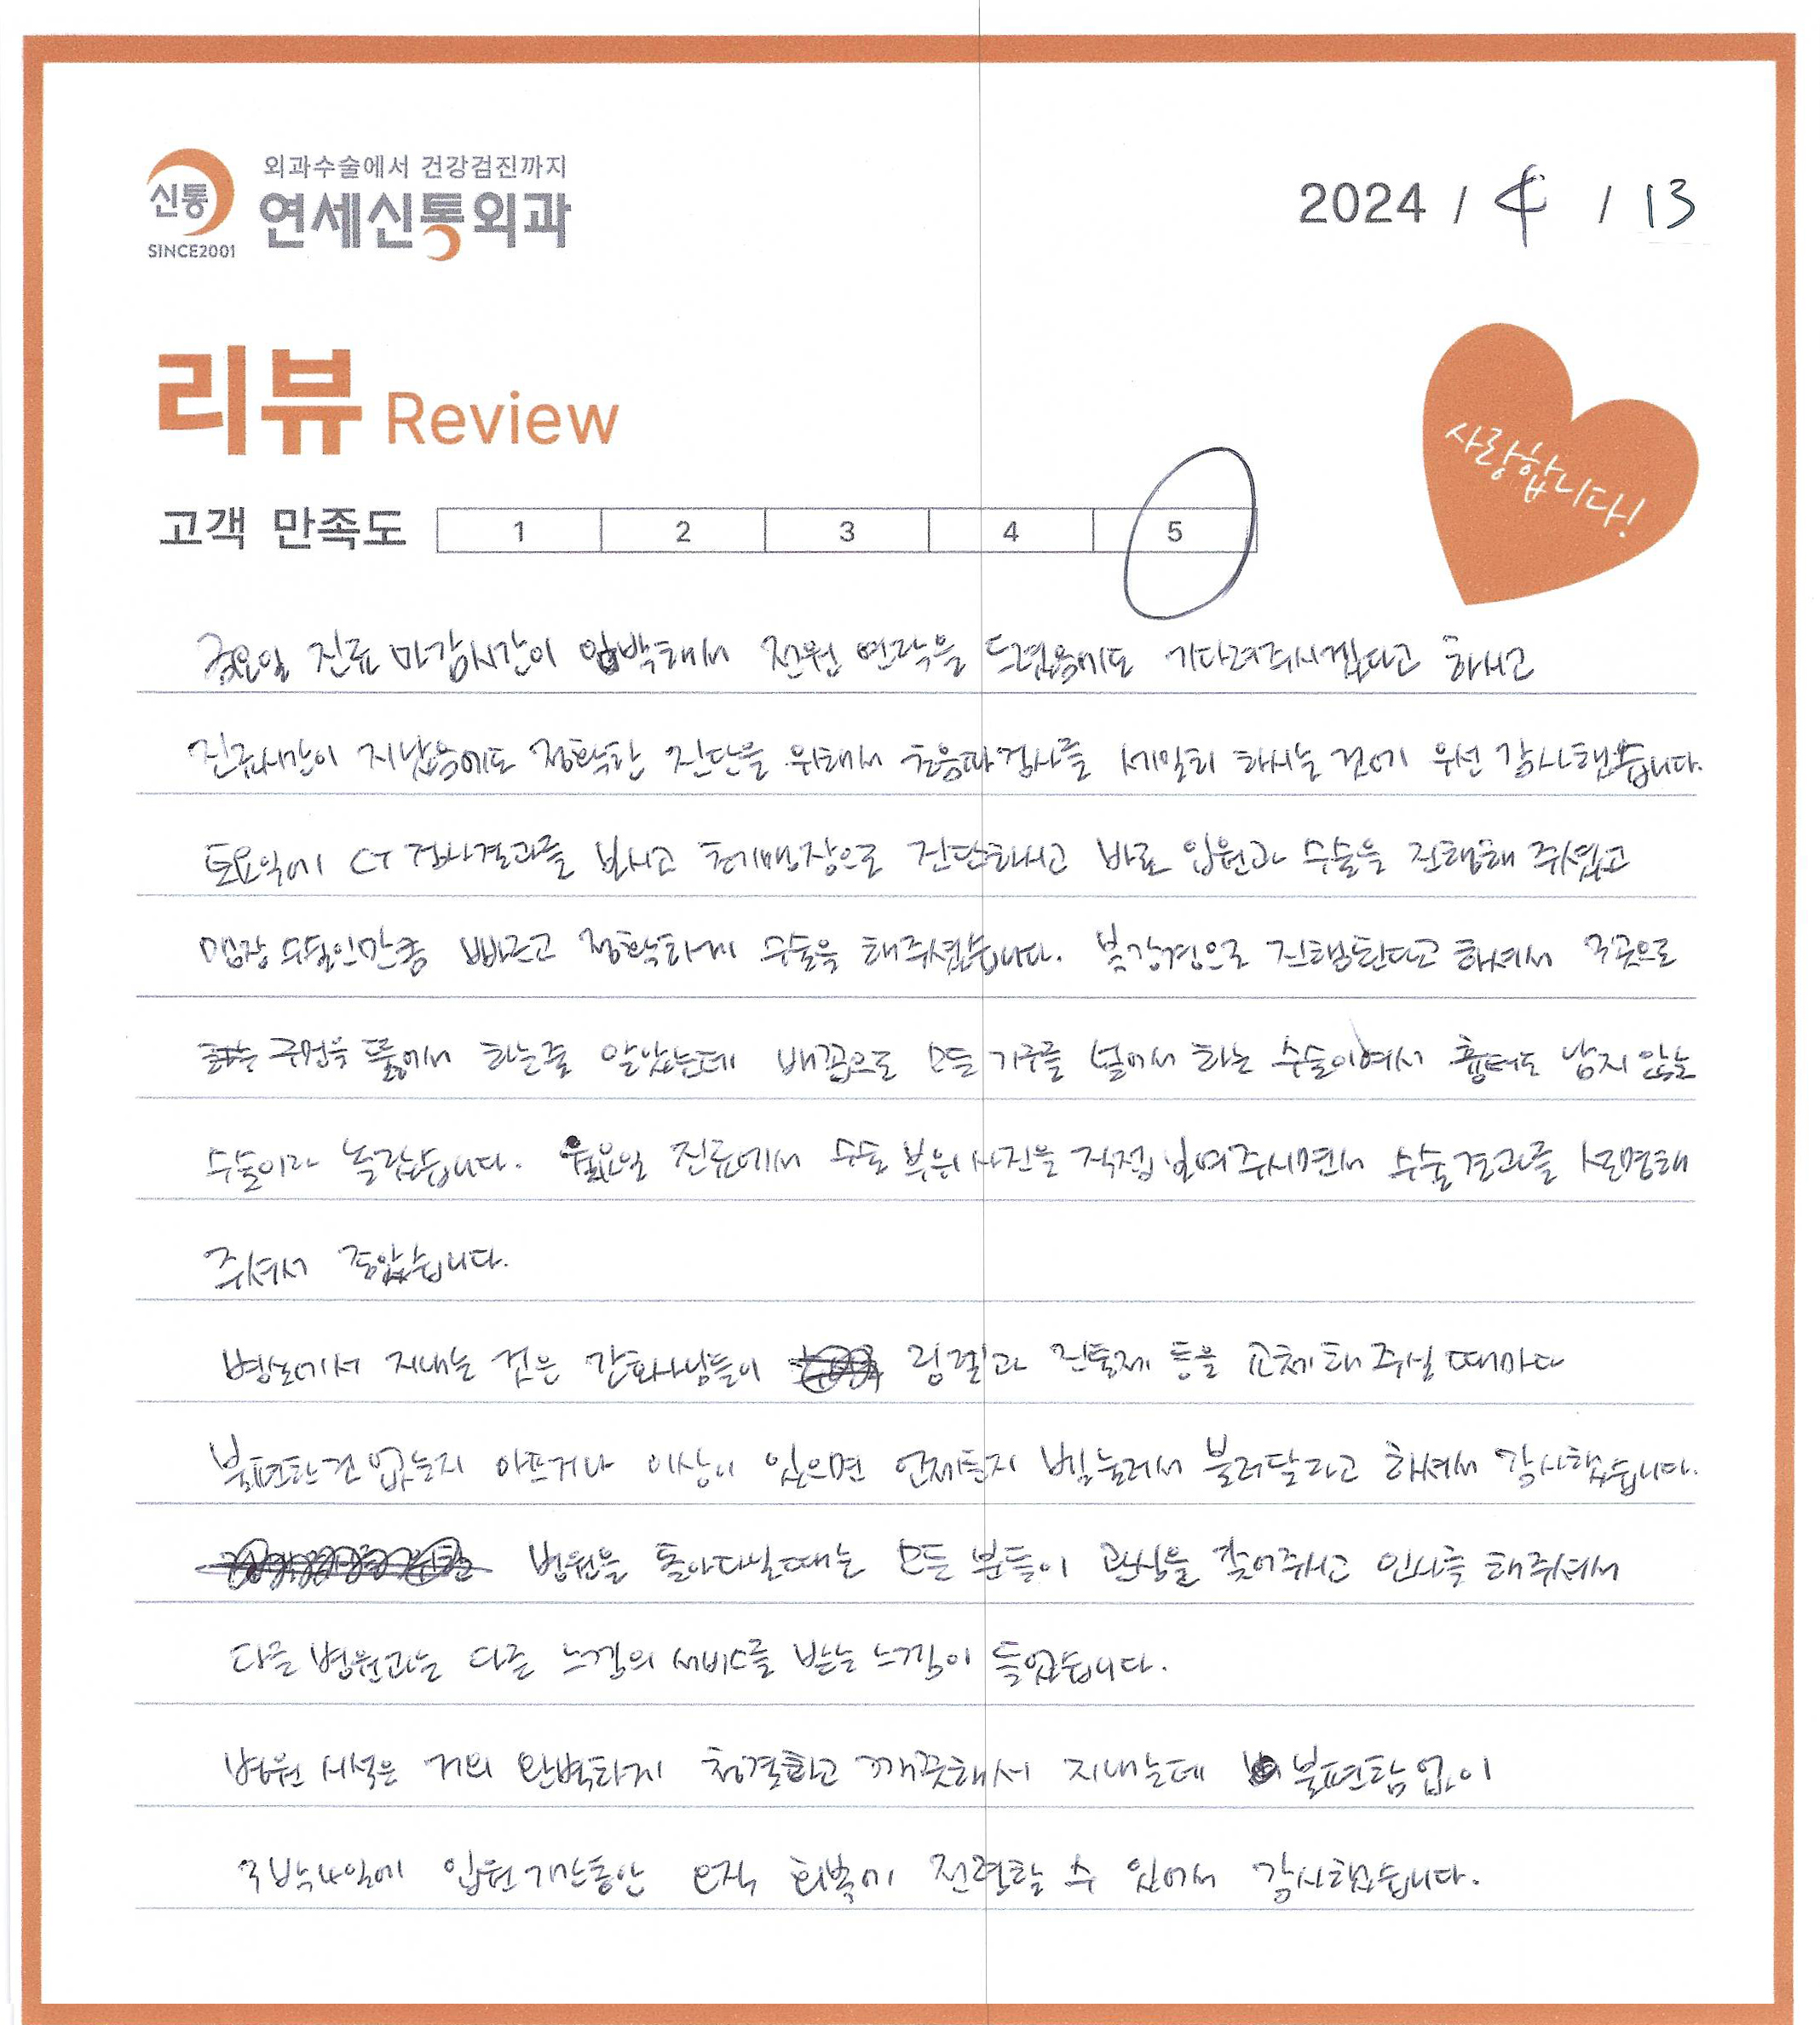 신통
SINCE2001
외과수술에서 건강검진까지
연세신통외과
2024 / 4 / 13
리뷰 Review
사랑합니다!
고객 만족도 1 2 3 4 5
금요일 진료 마감시간이 임박해서 전원 연락을 드렸음에도 기다려주시겠다고 하시고
진료시간이 지났음에도 정확한 진단을 위해서 초음파검사를 세밀히 하시는 것에 우선 감사했습니다.
토요일에 CT 검사결과를 보시고 초기맹장으로 진단하시고 바로 입원과 수술을 진행해 주셨고
맹장 수술인만큼 빠르고 정확하게 수술을 해주셨습니다. 복강경으로 진행한다고 하셔서 3곳으로
구멍을 뚫어서 하는줄 알았는데 배꼽으로 모든 기구를 넣어서 하는 수술이여서 흉터도 남지 않는
수술이라 놀랐습니다. 월요일 진료에서 수술 부위 사진을 직접 보여주시면서 수술결과를 설명해
주셔서 좋았습니다.
병실에서 지내는 것은 간호사님들이 링겔과 진통제 등을 교체해 주실 때마다
불편한건 없는지 아프거나 이상이 있으면 언제든지 벨눌러서 불러달라고 하셔서 감사했습니다.
병원을 돌아다닐때는 모든 분들이 관심을 갖어주시고 인사를 해주셔서
다른 병원과는 다른 느낌의 서비스를 받는 느낌이 들었습니다.
병원 시설은 거의 완벽하게 청결하고 깨끗해서 지내는데 불편함 없이
3박4일에 입원기간동안 오직 회복에 전념할 수 있어서 감사했습니다.